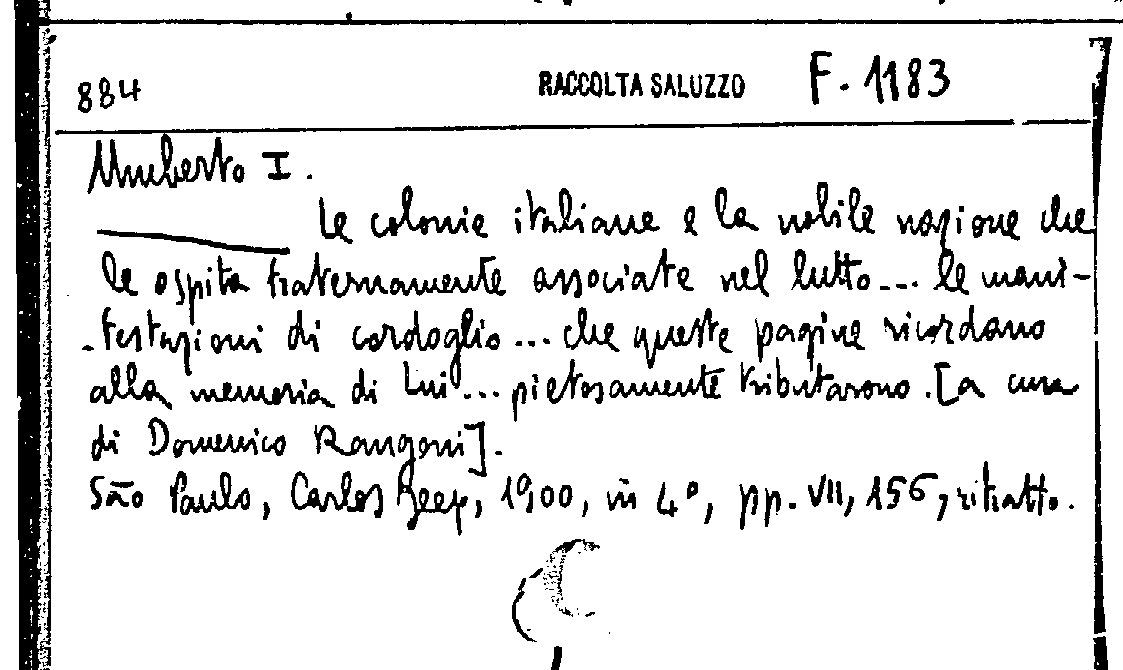 884 RACCOLTA SALUZZO F. 1183
Umberto I.
Le colonie italiane e la nobile nazione che
le ospita fraternamente associate nel lutto... le mani-
-festazioni di cordoglio... che queste pagine ricordano
alla memoria di Lui... pietosamente tributarono. [a cura
di Domenico Rangoni].
São Paulo, Carlos, 1900, in 4º, pp. VII, 156, ritratto.